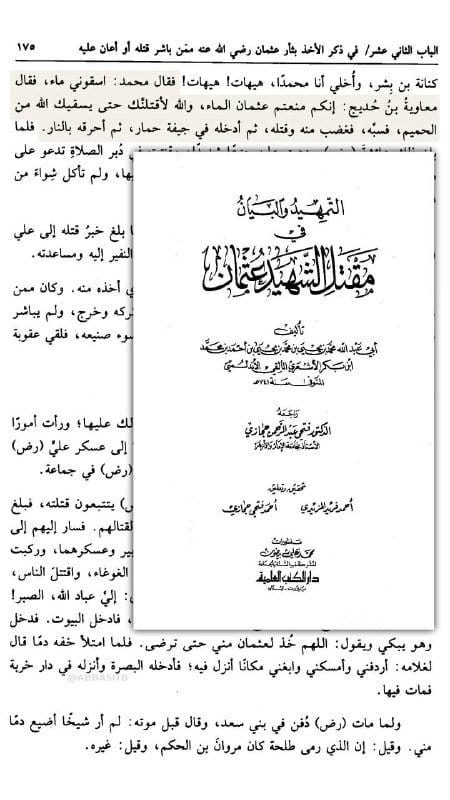 الباب الثاني عشر/ في ذكر الأخذ بثأر عثمان رضي الله عنه ممّن باشر قتله أو أعان عليه ١٧٥
كنانة بن بِشر، وأُخلي أنا محمدًا، هيهات! هيهات! فقال محمد: اسقوني ماء، فقال
معاويةُ بنُ حُديج: إنكم منعتم عثمان الماء، والله لأقتلنّك حتى يسقيك الله من
الحميم، فسبّه، فغضب منه وقتله، ثم أدخله في جيفة حمار، ثم أحرقه بالنار. فلما
دُبر الصلاةِ تدعو على
ولم تأكل شِواءً من
بلغ خبرُ قتله إلى علي
النفير إليه ومساعدته.
أخذه منه. وكان ممن
تركه وخرج، ولم يباشر
سوء صنيعه، فلقي عقوبة
عليها؛ ورأت أمورًا
إلى عسكر عليٍّ (رض)
(رض) في جماعة.
يتتبعون قتلته، فبلغ
لقتالهم. فسار إليهم إلى
وعسكرهما، وركبت
الغوغاء، واقتتلَ الناس،
إليَّ عباد الله، الصبر!
فادخل البيوت. فدخل
التمهيد والبيان
في
مقتل الشهيد عثمان
تأليف
أبي عبد الله محمد بن يحيى بن محمد بن يحيى بن أحمد بن محمد
ابن بكر الأشعري المالقي الأندلسي
المتوفى سنة ٧٤١هـ
راجعه
الدكتور فتحي عبد الرحمن حجازي
تحقيق وتعليق
أحمد فريد المزيدي أحمد فتحي حجازي
منشورات
محمد علي بيضون
دار الكتب العلمية
بيروت - لبنان
وهو يبكي ويقول: اللهم خُذ لعثمان مني حتى ترضى. فلما امتلأ خفه دمًا قال
لغلامه: أردفني وأمسكني وابغني مكانًا أنزل فيه؛ فأدخله البصرة وأنزله في دار خربة
فمات فيها.
@ABBASITB
ولما مات (رض) دُفن في بني سعد، وقال قبل موته: لم أر شيخًا أضيع دمًا
مني. وقيل: إن الذي رمى طلحة كان مروانَ بن الحكم، وقيل: غيره.